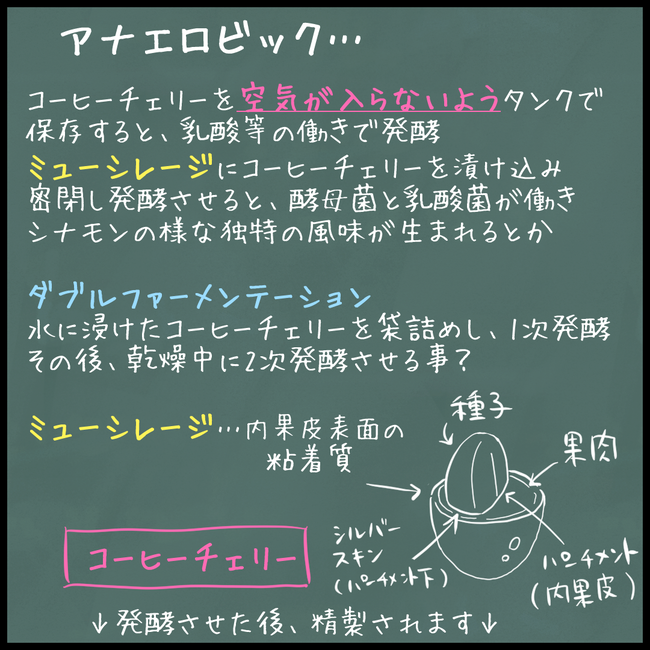 アナエロビック…
コーヒーチェリーを空気が入らないようタンクで
保存すると、乳酸等の働きで発酵
ミューシレージにコーヒーチェリーを漬け込み
密閉し発酵させると、酵母菌と乳酸菌が働き
シナモンの様な独特の風味が生まれるとか
ダブルファーメンテーション
水に浸けたコーヒーチェリーを袋詰めし、1次発酵
その後、乾燥中に2次発酵させる事？
ミューシレージ…内果皮表面の
粘着質
種子
果肉
シルバー
スキン
(パーチメント下)
パーチメント
(内果皮)
コーヒーチェリー
↓発酵させた後、精製されます↓